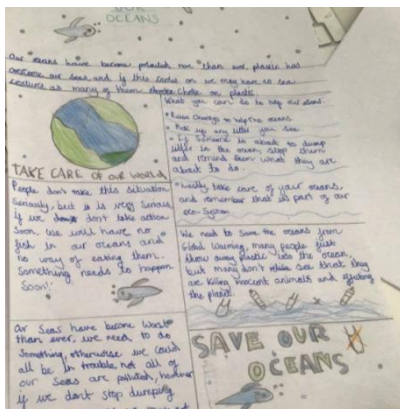 OUR
OCEANS
Our oceans have become polluted more than ever, plastic has
overcome our seas, and if this carries on we may have no sea
creatures as many of them choke on plastic.
What you can do to help our oceans:
• Raise awareness to help the oceans
• Pick up any litter you see
• If someone is about to dump
litter in the ocean, stop them
and remind them what they are
about to do.
• Lastly take care of your oceans,
and remember that its part of our
eco-system.
TAKE CARE OF OUR WORLD
People don't take this situation
seriously, but it is very serious
if we don't take action
soon, we will have no
fish in our oceans and
no way of eating them.
Something needs to happen
soon!
We need to save the oceans from
global warming, many people just
throw away plastic into the ocean,
but many don't see that they
are killing innocent animals and affecting
the planet.
Our seas have become worse
than ever, we need to do
something, otherwise we could
all be in trouble, not all of
our seas are polluted, however
if we don't stop dumping
SAVE OUR
OCEANS